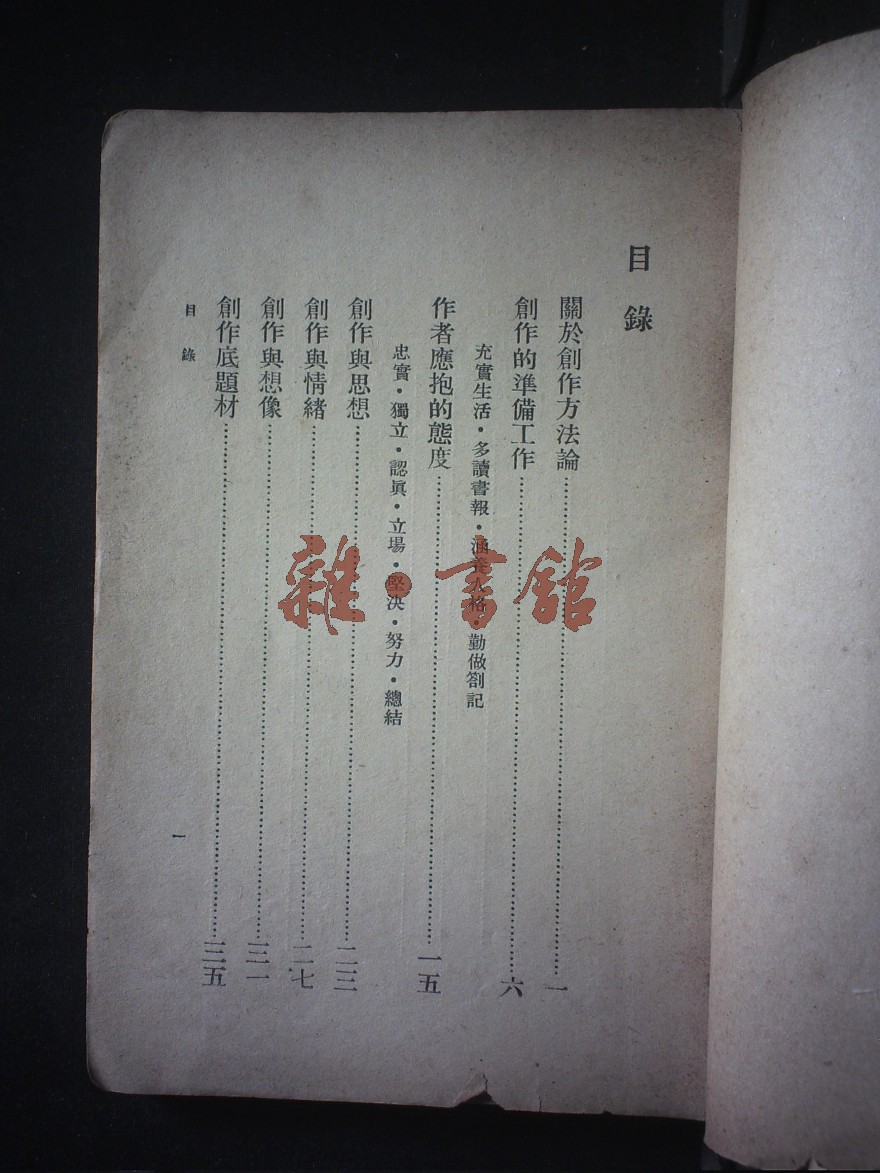 目錄
關於創作方法論……一
創作的準備工作……六
充實生活・多讀書報・涵養人格・勤做劄記
作者應抱的態度……一五
忠實・獨立・認眞・立場・堅決・努力・總結
創作與思想……二三
創作與情緒……二七
創作與想像……三一
創作底題材……三五
目錄
一
雜・書館